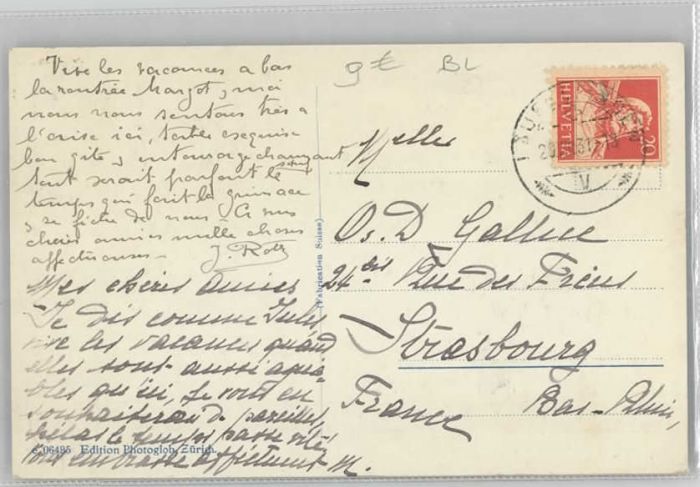 Vive les vacances a bas
la rentrée Margot, moi
nous nous sentons très a
l'aise ici, tertes exquise
bon gite, entourage changeant
tout serait parfait
temps qui fait la grimace
se fiche de nous. A mes
chères amies mille choses
affectueuses. J. Rolz
Mes chères amies
Je dis comme Jules
vive les vacances quand
elles sont aussi agréa
bles qu'ici, Je vous en
souhaiterai de pareilles,
hélas le temps passe vite
vous embrasse affectment M.
9€ BL
Melles
Os. D Gallnee
24 bis Rue des Frères
Strasbourg
France Bas-Rhin,
HELVETIA 20
V
(Fabrication Suisse)
c 06495 Edition Photoglob, Zürich.